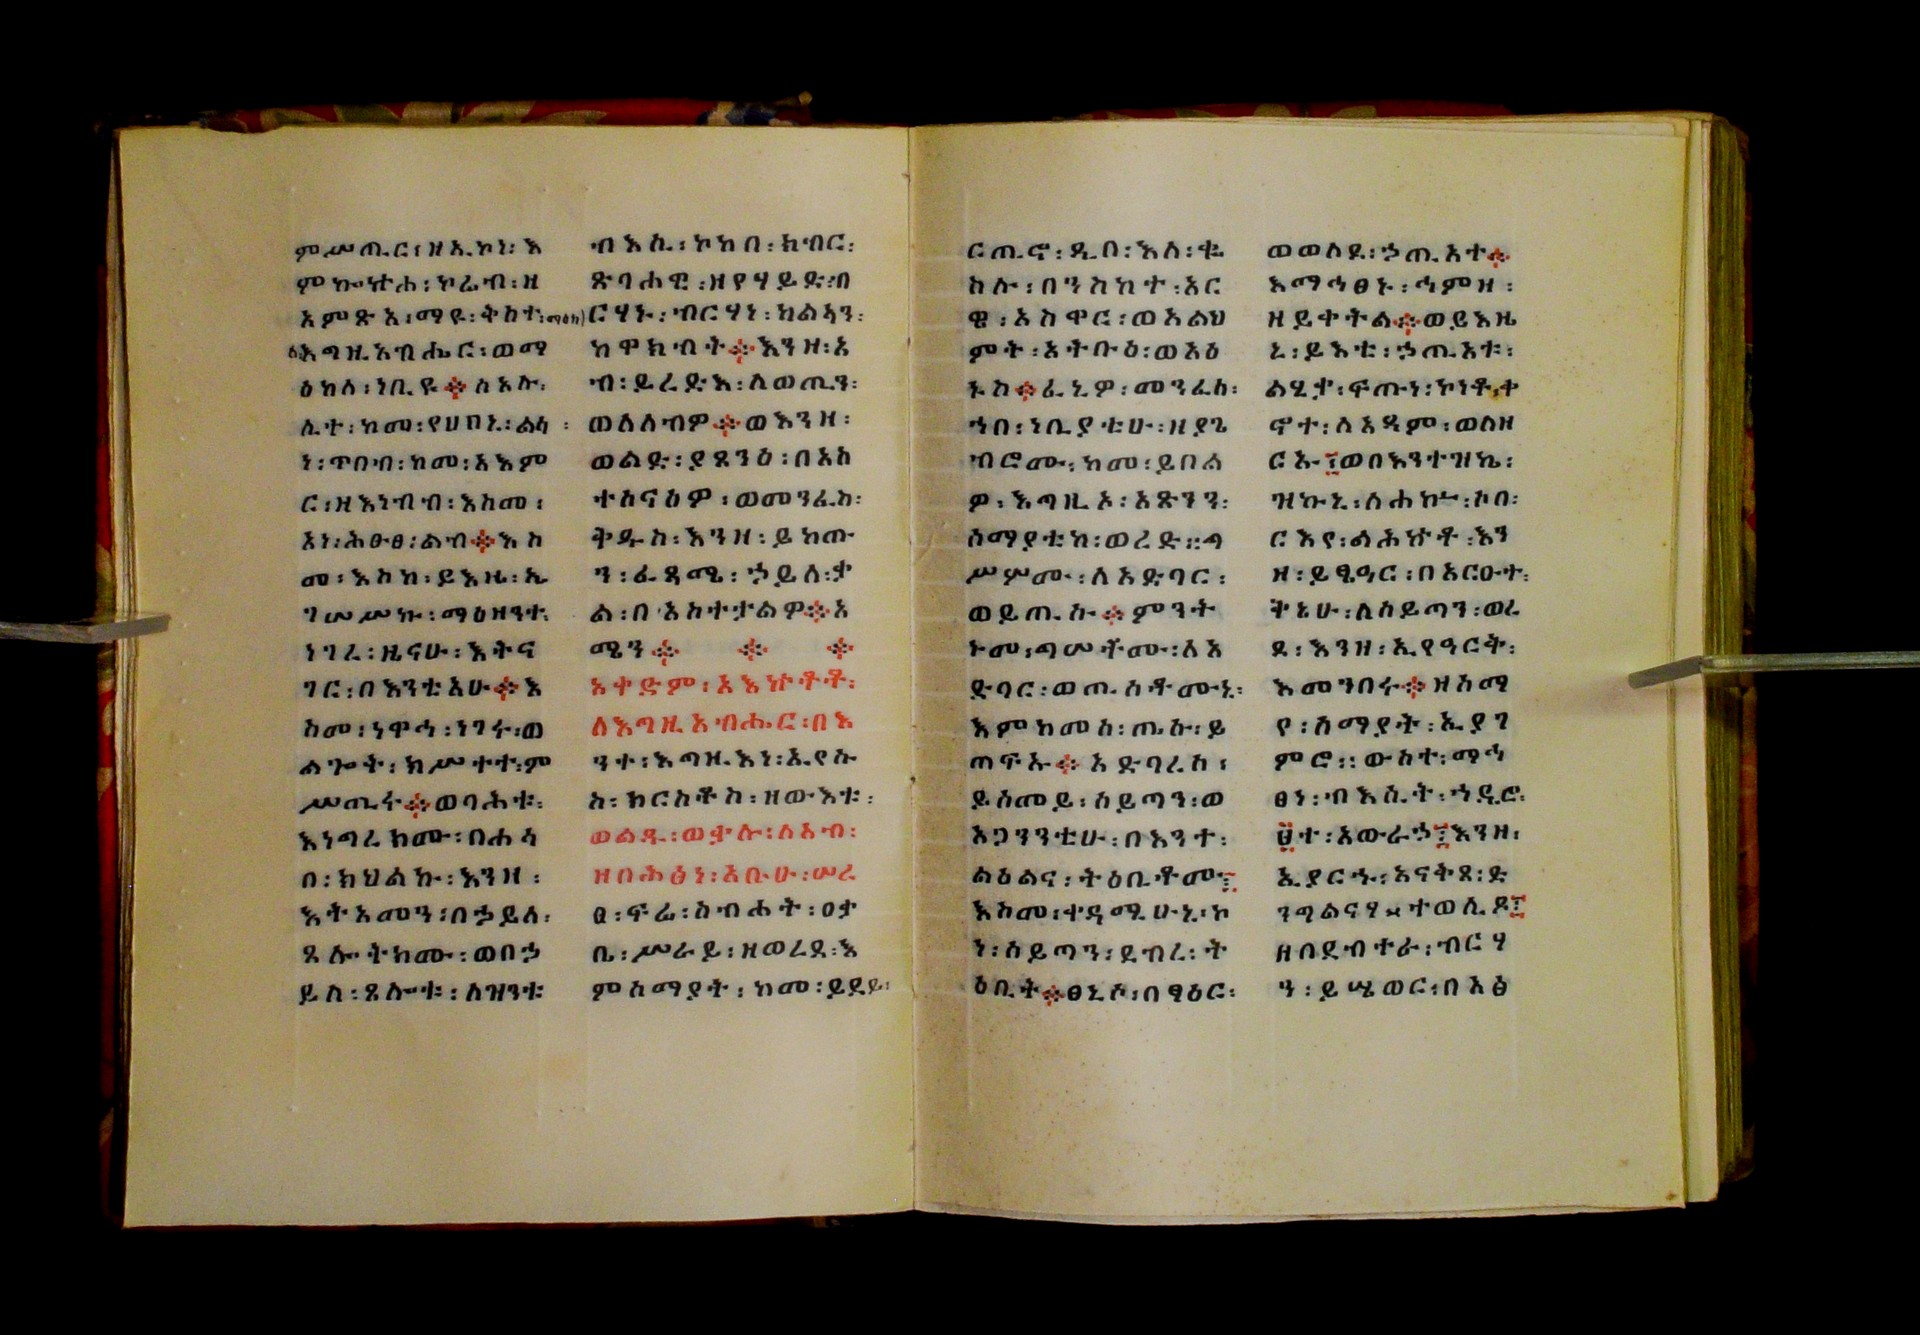 ምሥጢር፡ዘኢኮነ፡እ
ምኰኵሐ፡ኮሬብ፡ዘ
አምጽአ፡ማየ፡ቅስተ፡
እግዚአብሔር፡ወማ
ዕከለ፡ነቢዩ፨ስእሉ፡
ሊተ፡ከመ፡የሀበኒ፡ልሳ፡
ነ፡ጥበብ፡ከመ፡አእም
ር፡ዘእነብብ፡እስመ፡
አነ፡ሕፁፀ፡ልብ፨እስ
መ፡እስከ፡ይእዜ፡ኢ
ገሠሥኩ፡ማዕዘንተ፡
ነገረ፡ዜናሁ፡እትና
ገር፡በእንቲአሁ፨እ
ስመ፡ነዋኅ፡ነገሩ፡ወ
ልዑት፡ክሥተተ፡ም
ሥጢሩ፨ወባሕቱ፡
እነግረክሙ፡በሐሳ
በ፡ክህልኩ፡እንዘ፡
እትአመን፡በኃይለ፡
ጸሎትክሙ፡ወበኃ
ይለ፡ጸሎቱ፡ለዝንቱ
ብእሲ፡ኮከበ፡ክብር፡
ጽባሐዊ፡ዘየሃይድ፡ብ
ርሃኑ፡ብርሃነ፡ክልኣን፡
ከዋክብት፨እንዘ፡አ
ብ፡ይረድእ፡ለወጢን፡
ወለለብዎ፨ወእንዘ፡
ወልድ፡ያጸንዕ፡በአስ
ተስናዕዎ፡ወመንፈስ፡
ቅዱስ፡እንዘ፡ይከጡ
ን፡ፈጻሜ፡ኃይለ፡ቃ
ል፡በአስተታልዎ፨አ
ሜን፨ ፨ ፨
አቀድም፡አእኵቶቶ፡
ለእግዚአብሔር፡በእ
ንተ፡እግዚእነ፡ኢየሱ
ስ፡ክርስቶስ፡ዘውእቱ፡
ወልዱ፡ወቃሉ፡ለአብ፡
ዘበሕፅነ፡አቡሁ፡ሠረ
ፀ፡ፍሬ፡ስብሐት፡ዐቃ
ቤ፡ሥራይ፡ዘወረደ፡እ
ምሰማያት፡ከመ፡ይደይ፡
ርጢኖ፡ዲበ፡እለ፡ቁ
ስሉ፡በንስከተ፡አር
ዌ፡አስዋር፡ወአልህ
ምት፡አትቡዕ፡ወአዕ
ኑስ፨ፈኒዎ፡መንፈስ፡
ኀበ፡ነቢያቲሁ፡ዘያጌ
ብሮሙ፡ከመ፡ይበል
ዎ፡እግዚኦ፡አጽንን፡
ሰማያቲከ፡ወረድ፡፡ግ
ሥሦሙ፡ለአድባር፡
ወይጢሱ፨ምንት
ኑመ፡ግሠቶሙ፡ለአ
ድባር፡ወጢስቶሙኒ፡
እምከመሰ፡ጤሱ፡ይ
ጠፍኡ፨አድባረሰ፡
ይሰመይ፡ሰይጣን፡ወ
አጋንንቲሁ፡በእንተ፡
ልዕልና፡ትዕቢቶሙ፤
እስመ፡ተዳሚሁኒ፡ኮ
ነ፡ሰይጣን፡ደብረ፡ት
ዕቢት፨ፀኒሶ፡በፃዕር፡
ወወለደ፡ኃጢአተ፨
እማኅፀኑ፡ኅምዘ፡
ዘይቀትል፨ወይእዜ
ኒ፡ይእቲ፡ኃጢአቱ፡
ልሂቃ፡ፍጡነ፡ኮነቶ፡ቀ
ኖተ፡ለአዳም፡ወለዘ
ርኡ፤ወበእንተዝኬ፡
ዝኩኒ፡ሰሐከሦ፡ኮበ፡
ርእየ፡ልሕኵቶ፡እን
ዘ፡ይፄዓር፡በአርዑተ፡
ቅኔሁ፡ለሰይጣን፡ወረ
ደ፡እንዘ፡ኢየዓርቅ፡
እመንበሩ፨ዘሰማ
የ፡ሰማያት፡ኢያገ
ምሮ፡፡ውስተ፡ማኅ
ፀነ፡ብእሲት፡ኀዲሮ፡
፱ተ፡አውራኃ፤እንዘ፡
ኢያርኁ፡አናቅጸ፡ድ
ንግልናሃ፡ተወሊዶ፤
ዘበደብተራ፡ብርሃ
ን፡ይሤወር፡በአፅ